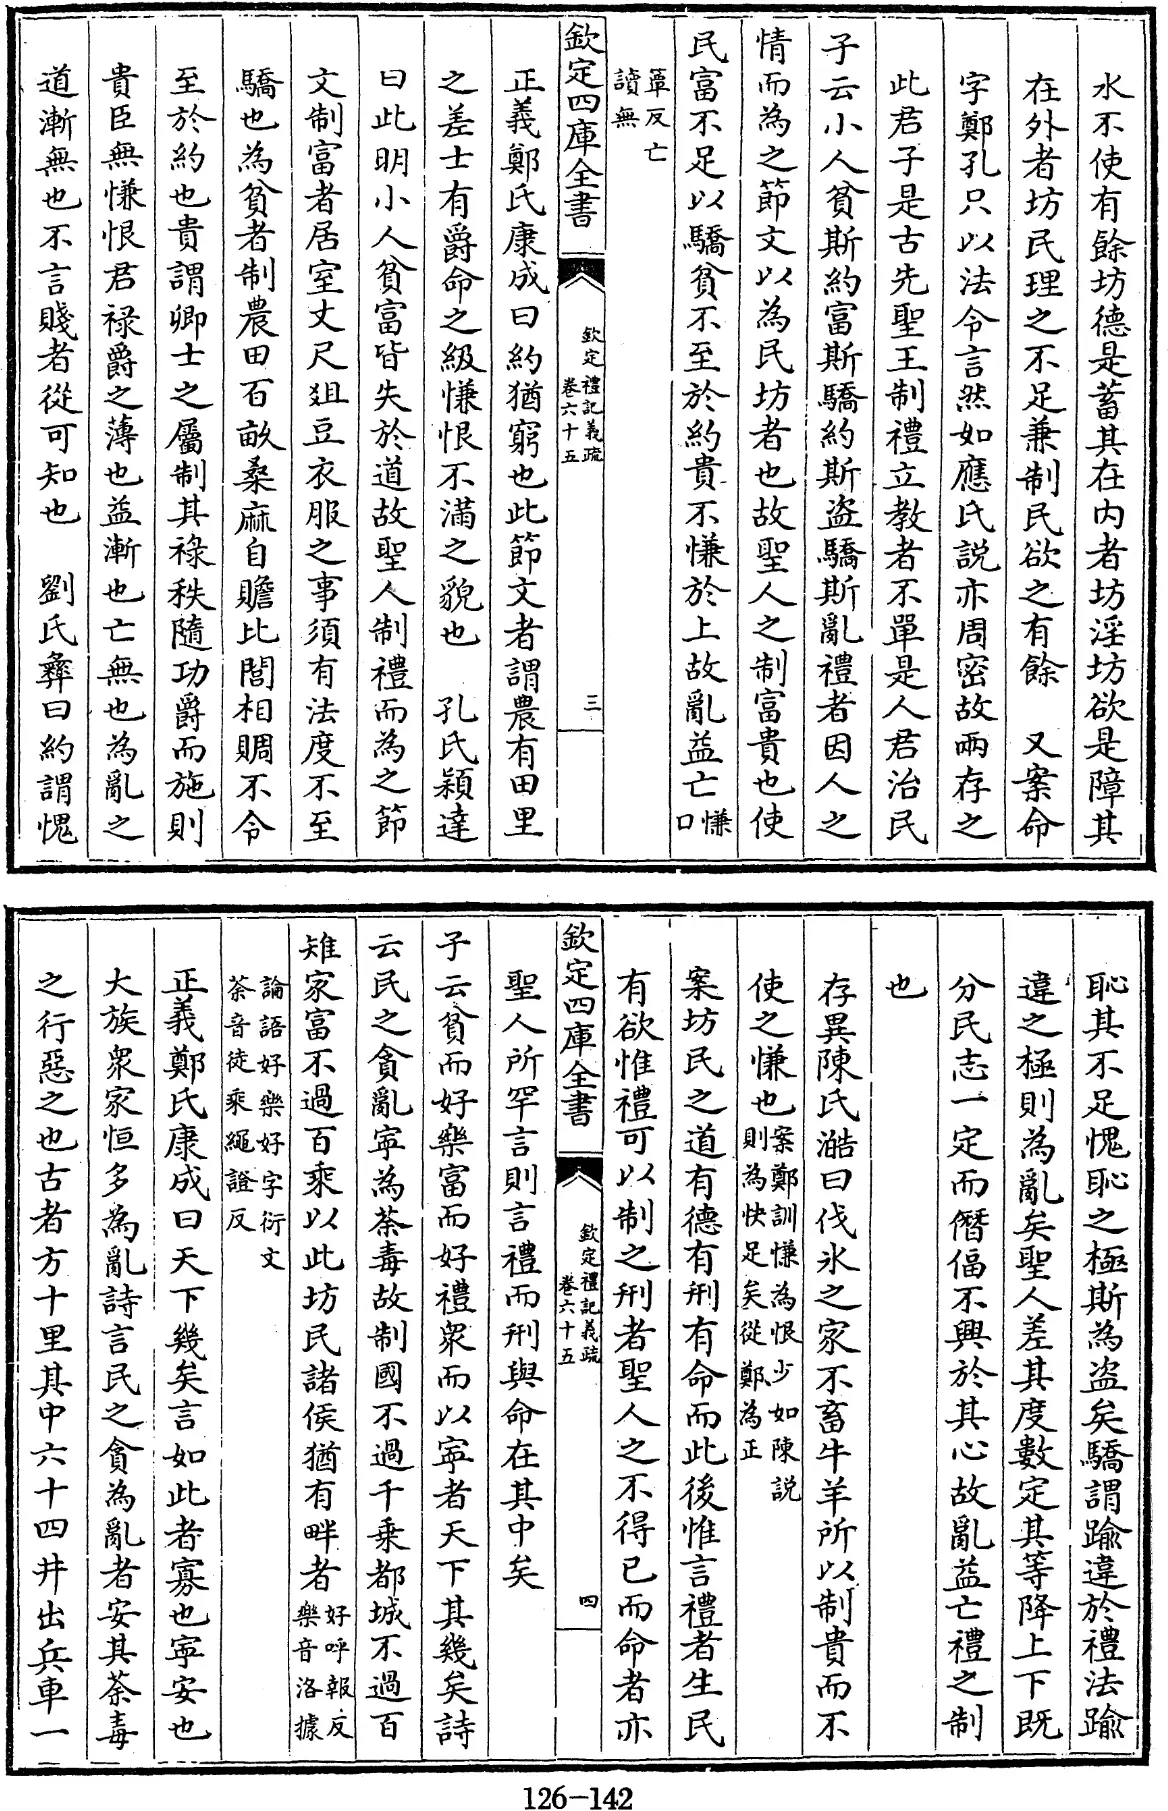 水不使有餘坊德是蓄其在内者坊淫坊欲是障其
在外者坊民理之不足兼制民欲之有餘　又案命
字鄭孔只以法令言然如應氏説亦周密故兩存之
此君子是古先聖王制禮立教者不單是人君治民
子云小人貧斯約富斯驕約斯盗驕斯亂禮者因人之
情而為之節文以為民坊者也故聖人之制富貴也使
民富不足以驕貧不至於約貴不慊於上故亂益亡慊
口
簟反亡
讀無
欽定四庫全書
欽定禮記義疏
卷六十五
三
正義鄭氏康成曰約猶窮也此節文者謂農有田里
之差士有爵命之級慊恨不滿之貌也　孔氏穎達
曰此明小人貧富皆失於道故聖人制禮而為之節
文制富者居室丈尺俎豆衣服之事須有法度不至
驕也為貧者制農田百畝桑麻自贍比閭相賙不令
至於約也貴謂卿士之屬制其禄秩隨功爵而施則
貴臣無慊恨君禄爵之薄也益漸也亡無也為亂之
道漸無也不言賤者從可知也　劉氏彝曰約謂愧
恥其不足愧恥之極斯為盗矣驕謂踰違於禮法踰
違之極則為亂矣聖人差其度數定其等降上下既
分民志一定而僭偪不興於其心故亂益亡禮之制
也
存異陳氏澔曰伐氷之家不畜牛羊所以制貴而不
使之慊也案鄭訓慊為恨少如陳説
則為快足矣從鄭為正
案坊民之道有德有刑有命而此後惟言禮者生民
有欲惟禮可以制之刑者聖人之不得已而命者亦
欽定四庫全書
欽定禮記義疏
卷六十五
四
聖人所罕言則言禮而刑與命在其中矣
子云貧而好樂富而好禮衆而以寧者天下其幾矣詩
云民之貪亂寧為荼毒故制國不過千乗都城不過百
雉家富不過百乗以此坊民諸侯猶有畔者好呼報反
樂音洛據
論語好樂好字衍文
荼音徒乗繩證反
正義鄭氏康成曰天下幾矣言如此者寡也寧安也
大族衆家恒多為亂詩言民之貪為亂者安其荼毒
之行惡之也古者方十里其中六十四井出兵車一
126-142